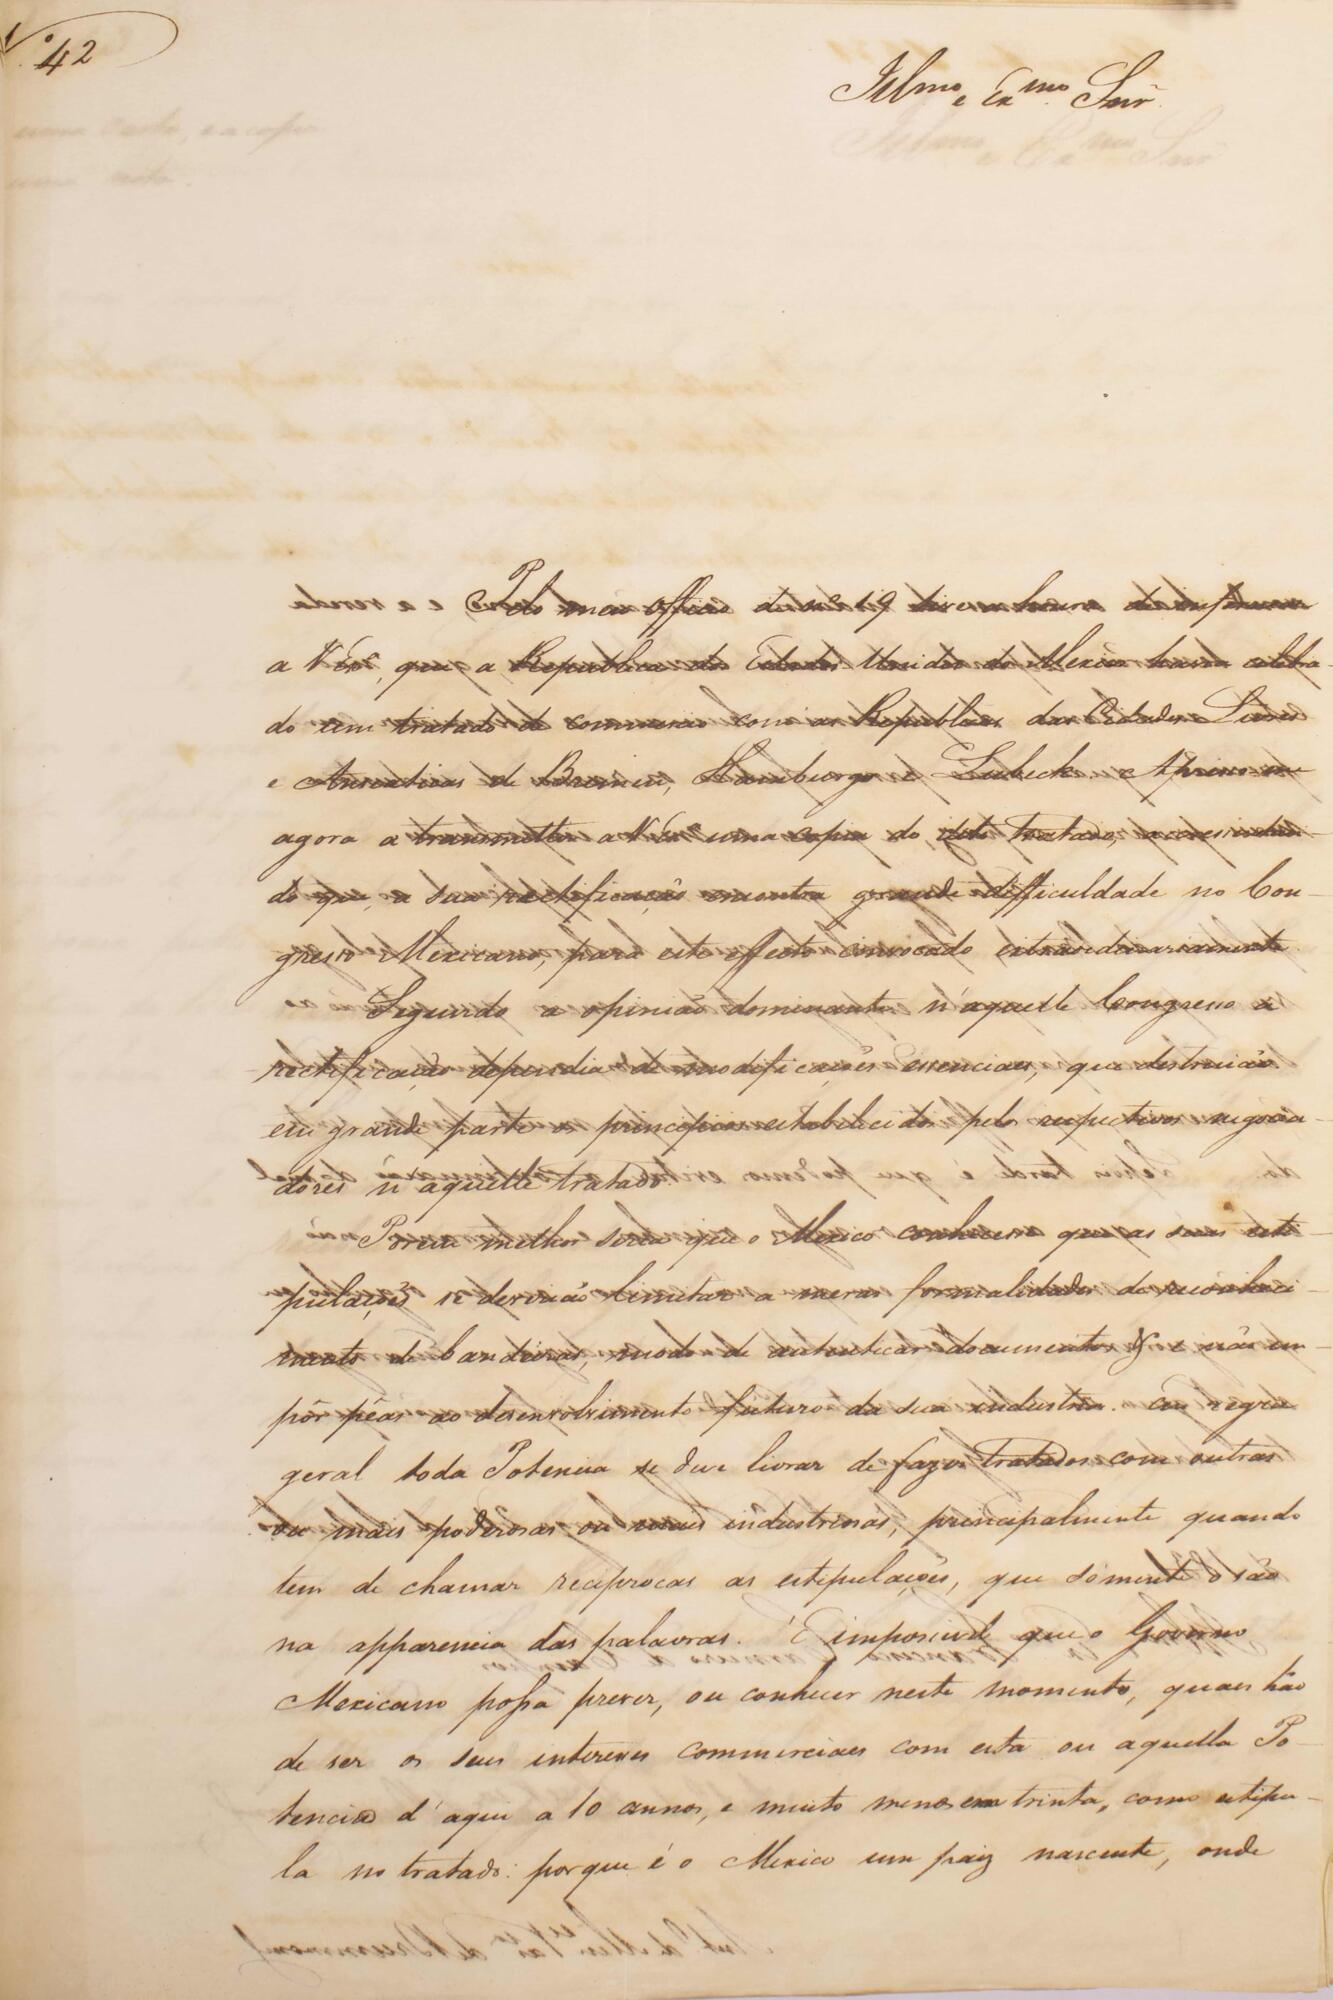 N.º 42
Illmo e Exmo Snr̃
Pelo meu officio de nº 19 tive a honra de informar
a V Exª, que a Republica dos Estados Unidos do Mexico havia celebra-
do um tratado de commercio com as Republicas das Cidades Livres
e Anseaticas de Bremen, Hamburgo e Lubeck. Apresso-me
agora a transmittir a V Exª uma copia do dito tratado, accrescentan-
do que, a sua rectificação encontra grande difficuldade no Con-
gresso Mexicano, para este effecto convocado extraordinariamente.
Segundo a opinião dominante n'aquelle Congresso a
rectificação dependia de modificações essenciaes, que destruião
em grande parte os principios estabelecidos pelos respectivos negocia-
dores n'aquelle tratado.
Porem melhor seria que o Mexico conhecesse que as suas esti-
pulações se deverião limitar a meras formalidades de reconheci-
mento de bandeiras, modo de autenticar documentos &, e não im-
pôr pêas ao desenvolvimento futuro da sua industria. Em regra
geral toda Potencia se deve livrar de fazer tratados com outras
ou mais poderosas ou mais industriosas, principalmente quando
tem de chamar reciprocas as estipulações, que sómente o são
na apparencia das palavras. É impossivel que o Governo
Mexicano possa prever, ou conhecer neste momento, quaes hão
de ser os seus interesses commerciaes com esta ou aquella Po-
tencia d'aqui a 10 annos, e muito menos em trinta, como estipu-
la no tratado: porque é o Mexico um paiz nascente, onde